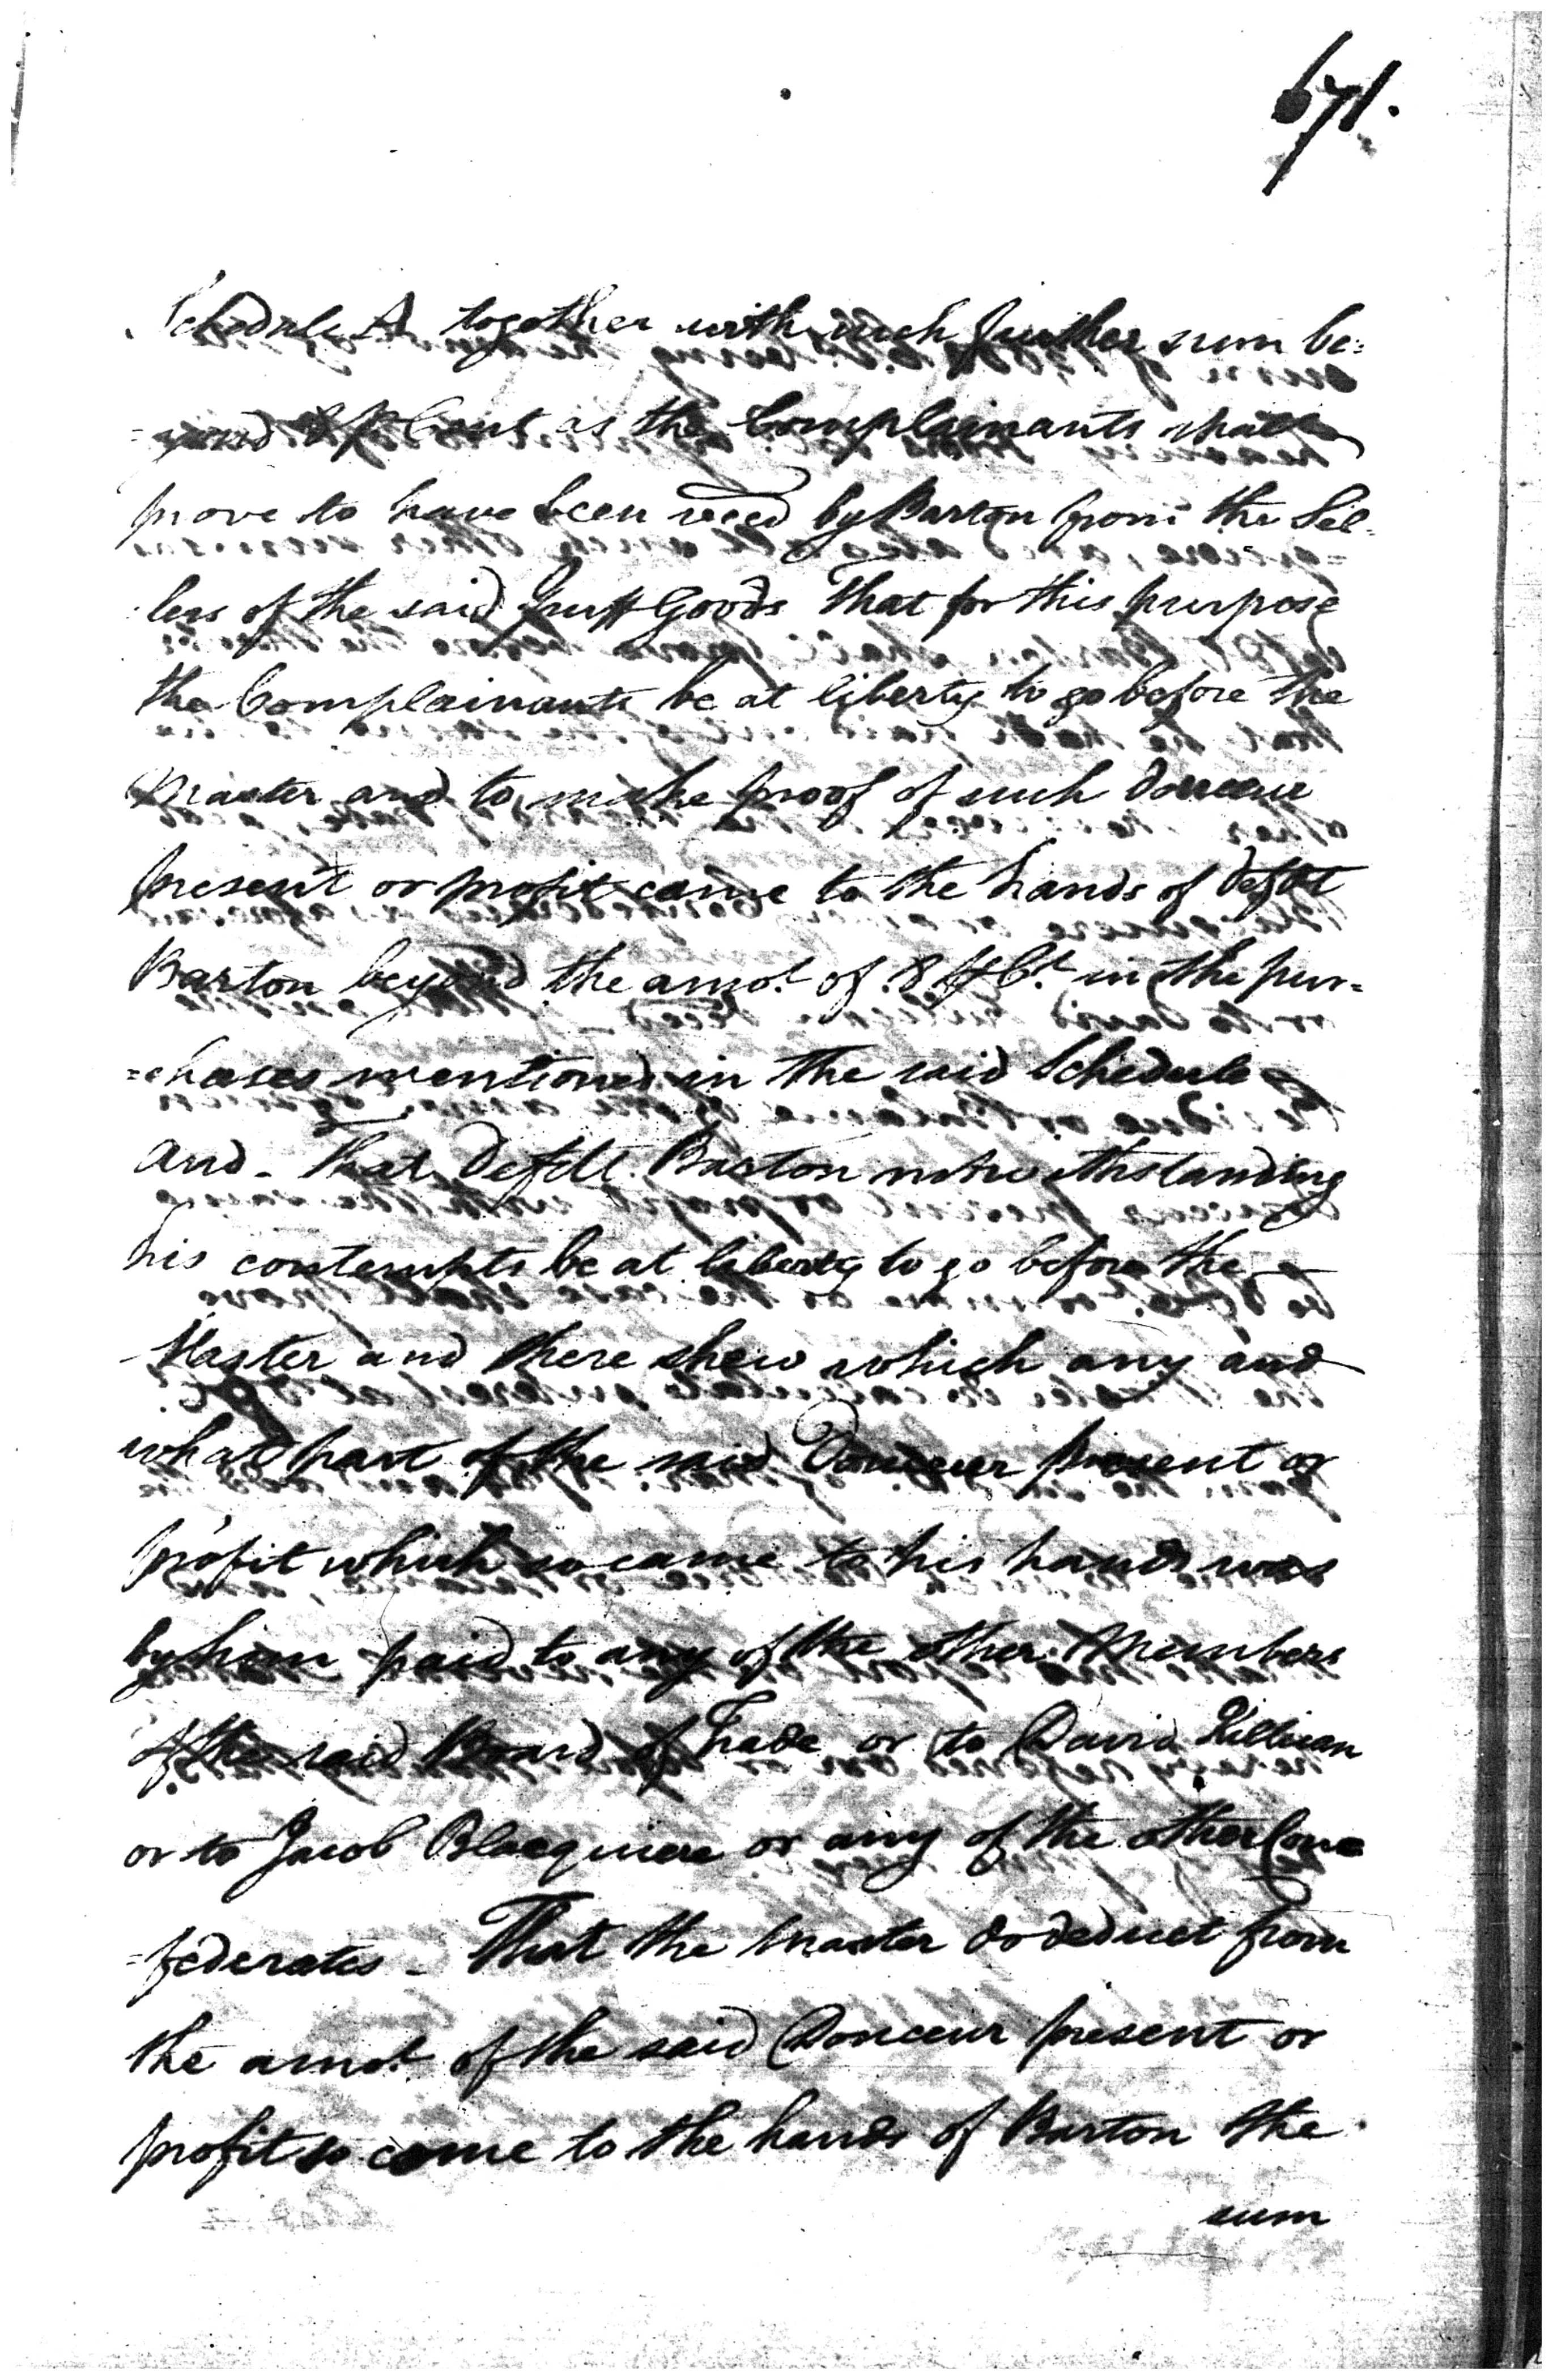 671.
Schedule A together with such further sum be=
=yond 8 p Cent as the Complainants shall
prove to have been reced by Barton from the Sel-
lers of the said Goods That for this purpose
the Complainants be at liberty to go before the
Master and to make proof of such Douceur
present or profit came to the hands of Defdt
Barton beyond the amot. of 8 p Ct. in the pur=
=chases mentioned in the said Schedule
and - That Defdt. Barton notwithstanding
his contempts be at liberty to go before the
Master and there shew which any and
what part of the said Douceur present or
profit which so came to his hands was
by him paid to any of the other Members
of the said Board of Trade or to David Killican
or to Jacob Blaequiere or any of the other Con=
=federates - That the Master do deduct from
the amot. of the said Douceur present or
profit so come to the hands of Barton the
sum